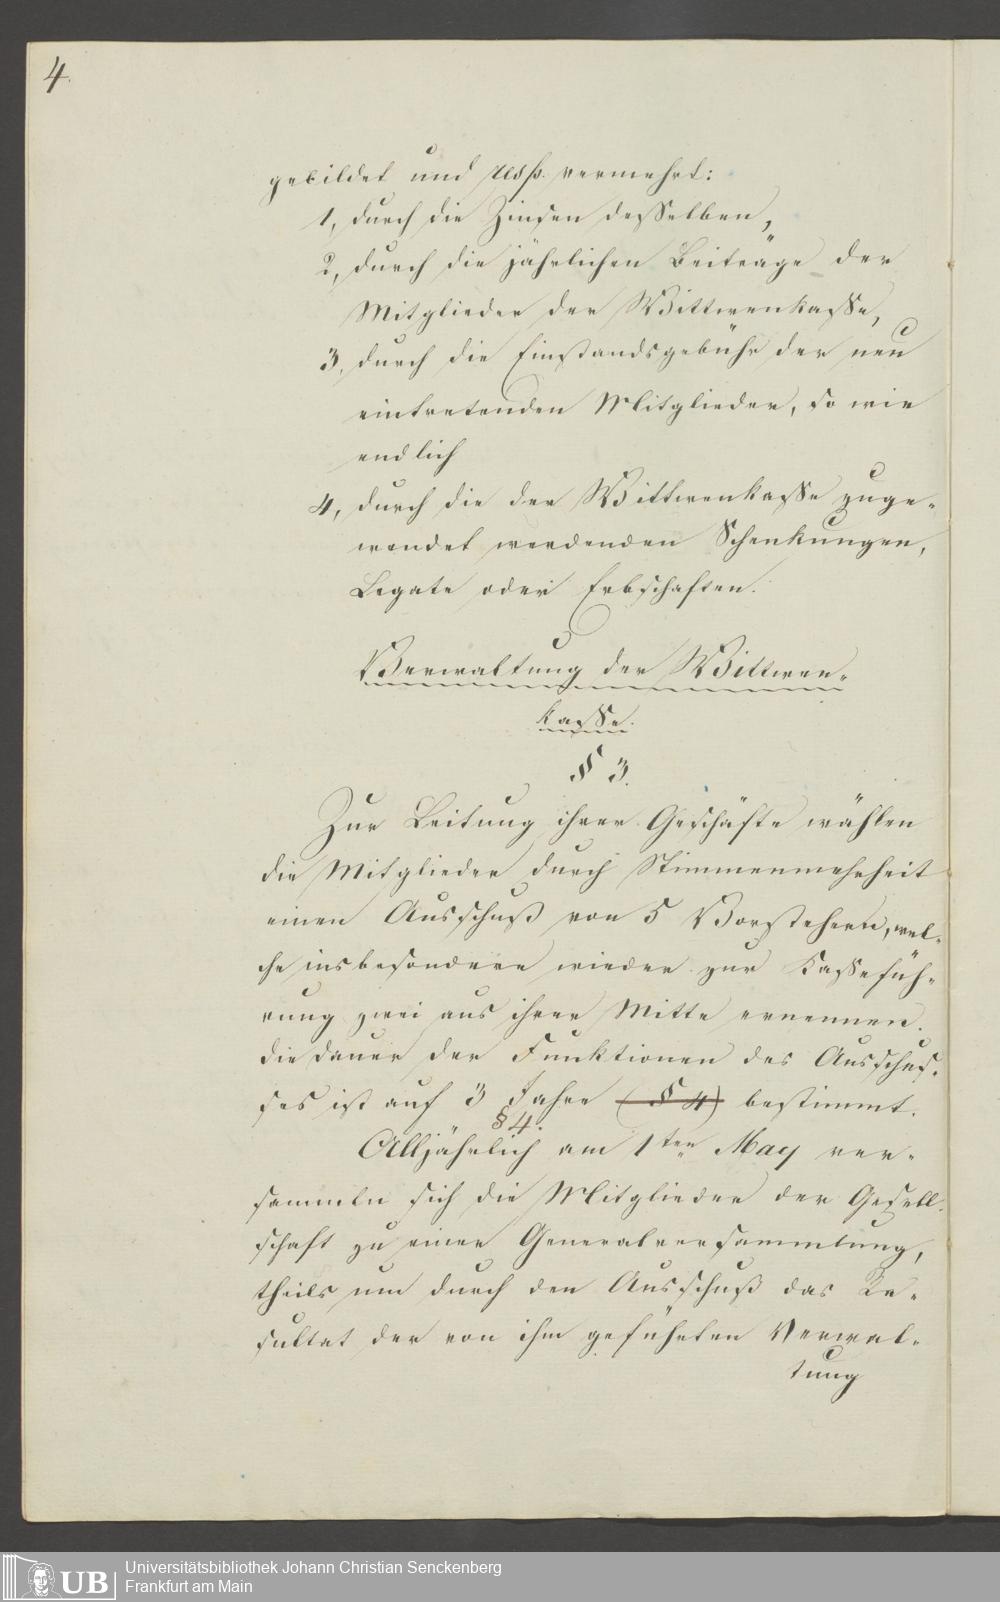 4.
gebildet und resp. vermehrt:
1, durch die Zinsen desselben,
2, durch die jährlichen Beiträge der
Mitglieder der Wittwenkasse,
3, durch die Einstandsgebühr der neu
eintretenden Mitglieder, so wie
endlich
4, durch die der Wittwenkasse zuge-
wendet werdenden Schenkungen,
Legate oder Erbschaften.
Verwaltung der Wittwen-
kasse.
§ 3.
Zur Leitung ihrer Geschäfte wählen
die Mitglieder durch Stimmenmehrheit
einen Ausschuß von 5 Vorstehern, wel-
che insbesondere wieder zur Kassefüh-
rung zwei aus ihrer Mitte ernennen.
Die Dauer der Funktionen des Ausschus-
ses ist auf 3 Jahre (§ 4) bestimmt.
§ 4.
Alljährlich am 1ten May ver-
sammeln sich die Mitglieder der Gesell-
schaft zu einer Generalversammlung,
theils um durch den Ausschuß das Re-
sultat der von ihm geführten Verwal-
tung
UB
Universitätsbibliothek Johann Christian Senckenberg
Frankfurt am Main